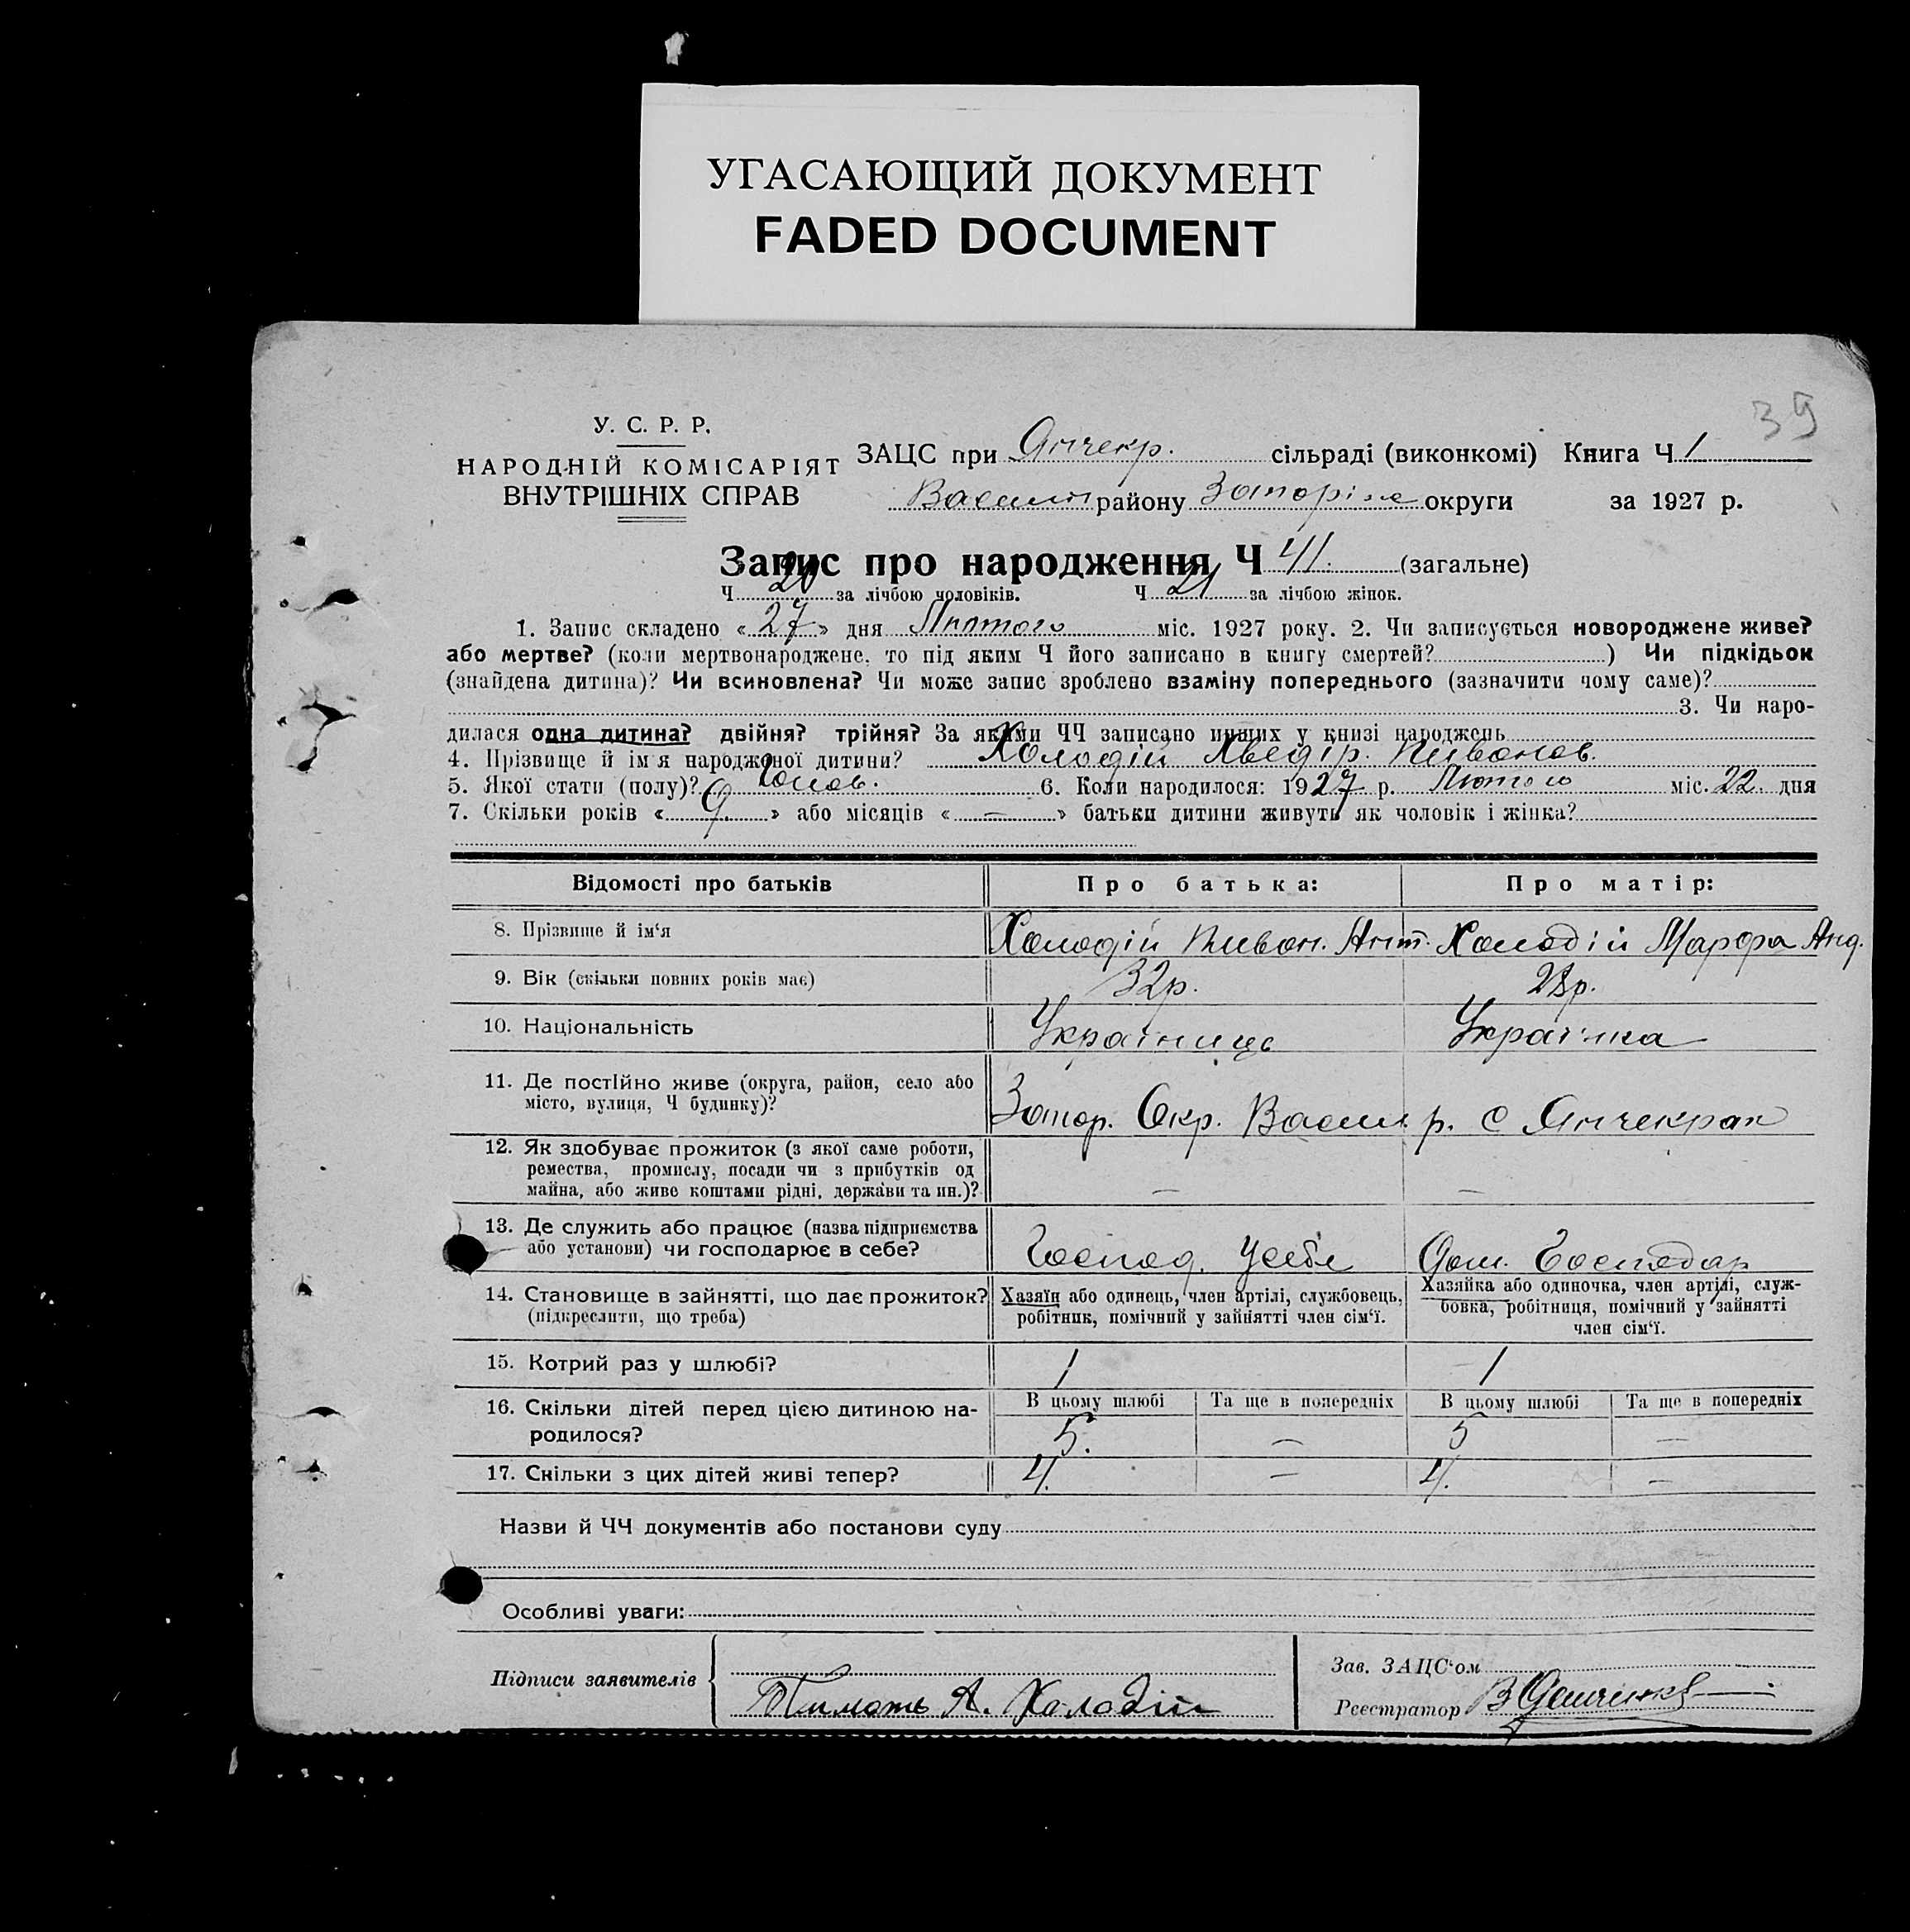 УГАСАЮЩИЙ ДОКУМЕНТ
FADED DOCUMENT
39
У. С. Р. Р.
НАРОДНІЙ КОМІСАРІЯТ
ВНУТРІШНІХ СПРАВ
ЗАЦС при Янчекр. сільраді (виконкомі) Книга Ч 1
Васил району Запоріж округи за 1927 р.
Запис про народження Ч 41. (загальне)
Ч 20 за лічбою чоловіків. Ч 21 за лічбою жінок.
1. Запис складено «27» дня Лютого міс. 1927 року. 2. Чи записується новороджене живе?
або мертве? (коли мертвонароджене, то під яким Ч його записано в книгу смертей?) Чи підкідьок
(знайдена дитина)? Чи всиновлена? Чи може запис зроблено взаміну попереднього (зазначити чому саме)?
3. Чи наро-
дилася одна дитина? двійня? трійня? За якими ЧЧ записано инших у книзі народжень
4. Прізвище й ім'я народженої дитини? Холодій Хведір. Пивонов.
5. Якої стати (полу)? Чолов. 6. Коли народилося: 1927 р. Лютого міс. 22. дня
7. Скільки років «9.» або місяців «—» батьки дитини живуть як чоловік і жінка?
Відомості про батьків Про батька: Про матір:
8. Прізвище й ім'я Холодій Пивон. Ант. Холодій Марфа Анд.
9. Вік (скільки повних років має) 32р. 28р.
10. Національність Українець Українка
11. Де постійно живе (округа, район, село або
місто, вулиця, Ч будинку)? Запор. Окр. Васил. р. с Янчекрак
12. Як здобуває прожиток (з якої саме роботи,
ремества, промислу, посади чи з прибутків од
майна, або живе коштами рідні, держави та ин.)? — —
13. Де служить або працює (назва підприємства
або установи) чи господарює в себе? Господ. у себе Дом. Господар
14. Становище в зайнятті, що дає прожиток? Хазяїн або одинець, член артілі, службовець, Хазяйка або одиночка, член артілі, служ-
(підкреслити, що треба) робітник, помічний у зайнятті член сім'ї. бовка, робітниця, помічний у зайнятті
член сім'ї.
15. Котрий раз у шлюбі? 1 1
16. Скільки дітей перед цією дитиною на- В цьому шлюбі Та ще в попередніх В цьому шлюбі Та ще в попередніх
родилося? 5. — 5 —
17. Скільки з цих дітей живі тепер? 4. — 4. —
Назви й ЧЧ документів або постанови суду
Особливі уваги:
Підписи заявителів Зав. ЗАЦС'ом
А. Холодій Реєстратор